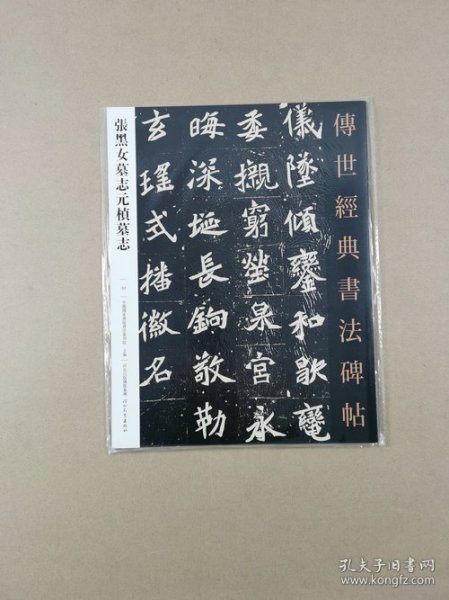 傳世經典書法碑帖
儀墜傾鑾和歇
委櫬窮塋泉宮永
晦深埏長銁敬勒
玄瑾式播徽名
張黑女墓志元楨墓志
孔夫子旧书网
www.kongfz.com